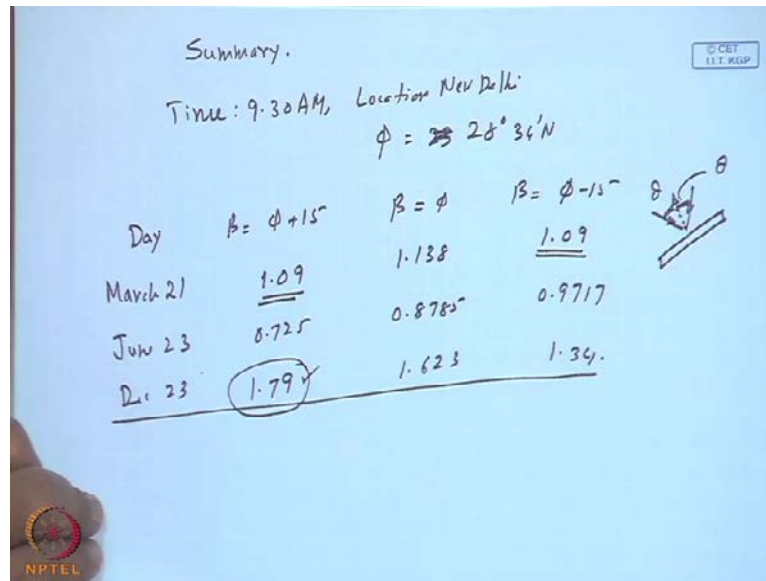 Summary.
© CET
I.I.T. KGP
Time: 9.30 AM, Location New Delhi
φ = 28° 36' N
Day β = φ + 15 β = φ β = φ - 15
θ θ
March 21 1.09 1.138 1.09
Jun 23 0.725 0.8785 0.9717
Dec 23 1.79 1.623 1.34.
NPTEL